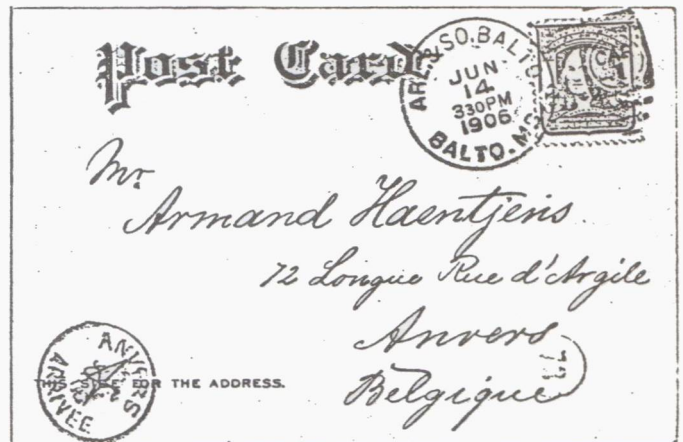 Post Card.
ARL. & SO. BALTO
JUN
14
330PM
1906
BALTO. MD
Mr.
Armand Haentjens
72 Longue Rue d'Argile
Anvers
Belgique
ANVERS
ARRIVÉE
THIS SIDE FOR THE ADDRESS.